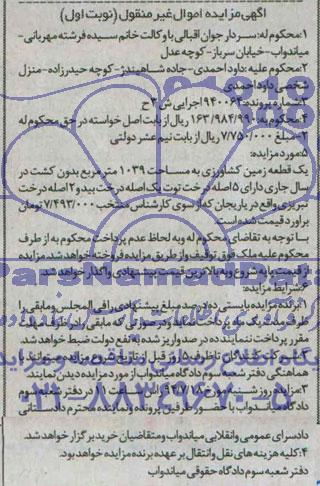 آگهی مزایده اموال غیر منقول (نوبت اول)
۱:محکوم له: سردار جوان اقبالی با وکالت خانم سیده فرشته مهربانی-
میاندوآب-خیابان سرباز-کوچه عدل
۲:محکوم علیه:داود احمدی-جاده شاهیندژ-کوچه حیدرزاده-منزل
شخصی داود احمدی
۳:شماره پرونده:۹۴۰۰۶۴ اجرایی ش ۳ ح
۴:محکوم به:۱۶۳/۹۸۴/۹۹۰ ریال از بابت اصل خواسته در حق محکوم له
۲-مبلغ ۷/۷۵۰/۰۰۰ ریال از بابت نیم عشر دولتی
۵:مورد مزایده:
یک قطعه زمین کشاورزی به مساحت ۱۰۳۹ متر مربع بدون کشت در
سال جاری دارای ۵ اصله درخت توت یک اصله درخت بید و ۲ اصله درخت
تبریزی واقع در یاریجان که از سوی کارشناس منتخب ۷/۴۹۳/۰۰۰ تومان
برآورد قیمت شده است.
با توجه به تقاضای محکوم له و به لحاظ عدم پرداخت محکوم به از طرف
محکوم علیه ملک فوق توقیف و از طریق مزایده فروخته خواهد شد. مزایده
از قیمت پایه شروع و به بالاترین قیمت پیشنهادی واگذار خواهد شد.
۶:شرایط مزایده:
۱:برنده مزایده بایستی ده درصد مبلغ پیشنهادی را فی المجلس و مابقی را
ظرف مدت یک ماه پرداخت نماید و در صورتی که مابقی را در ظرف مهلت
مقرر پرداخت ننماید ده در صد واریز شده به نفع دولت ضبط خواهد شد.
۲:شرکت کنندگان تا ظرف ۵ روز قبل از تاریخ شروع مزایده میتوانند با
هماهنگی دفتر شعبه سوم دادگاه میاندوآب از مورد مزایده دیدن نمایند.
۳:مزایده روز شنبه مورخه ۹۴/۷/۱۸ راس در دفتر شعبه سوم
دادگاه میاندوآب با حضور طرفین پرونده و نماینده محترم دادستانی
دادسرای عمومی و انقلابی میاندوآب و متقاضیان خرید برگزار خواهد شد.
۴:کلیه هزینه های نقل و انتقال بر عهده برنده مزایده خواهد بود.
دفتر شعبه سوم دادگاه حقوقی میاندوآب
ParsNamadData
۰۲۱-۸۸۳۴۹۶۷۰-۵